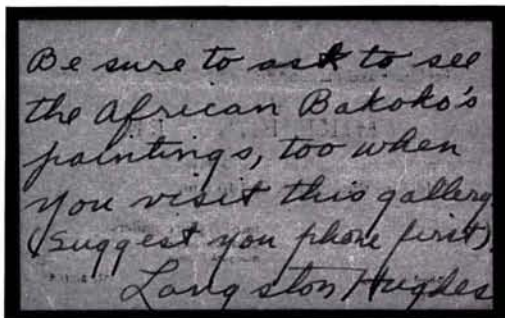 Be sure to ask to see
the African Bakoko's
paintings, too when
you visit this gallery
(Suggest you phone first).
Langston Hughes